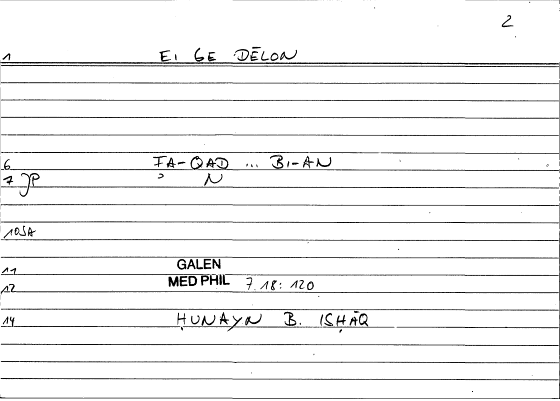 2
1 EI GE DĒLON
6 FA-QAD ... BI-AN
7 JP ɔ N
10 SA
11 GALEN
12 MED PHIL 7.18: 120
14 ḤUNAYN B. ISḤĀQ